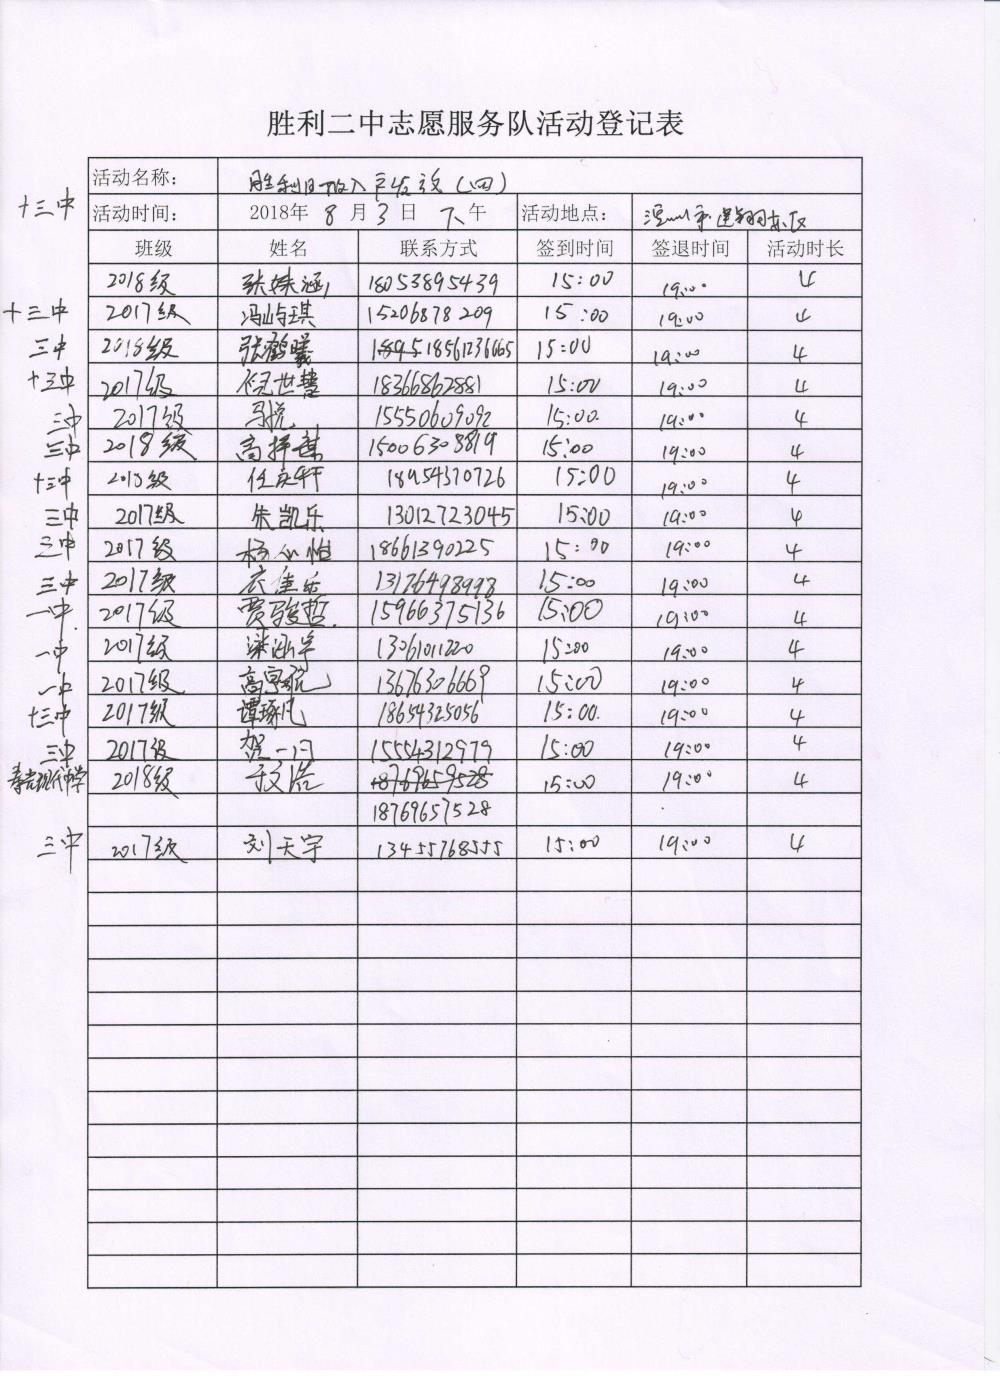 胜利二中志愿服务队活动登记表
活动名称： 胜利日报入户发放（四）
十三中
活动时间： 2018年 8 月 3 日 下 午 活动地点：
班级 姓名 联系方式 签到时间 签退时间 活动时长
2018级 张姝涵 18053895439 15:00 19:00 4
十三中 2017级 冯屿琪 15206878209 15:00 19:00 4
三中 2018级 张鹤曦 18561236665 15:00 19:00 4
十三中 2017级 倪世慧 18366862881 15:00 19:00 4
三中 2017级 马悦 15550609092 15:00 19:00 4
三中 2018级 15006308819 15:00 19:00 4
十三中 2018级 任庆轩 18954370726 15:00 19:00 4
三中 2017级 朱凯乐 13012723045 15:00 19:00 4
三中 2017级 杨心怡 18661390225 15:00 19:00 4
三中 2017级 13176498998 15:00 19:00 4
一中 2017级 贾骏哲 15966375136 15:00 19:00 4
一中 2017级 梁涵宇 13061011220 15:00 19:00 4
一中 2017级 13676306669 15:00 19:00 4
十三中 2017级 谭琢凡 18654325056 15:00 19:00 4
三中 2017级 贺一闩 15554312979 15:00 19:00 4
寿光现代中学 2018级 18769659528 15:00 19:00 4
18769657528
三中 2017级 刘天宇 13455768555 15:00 19:00 4